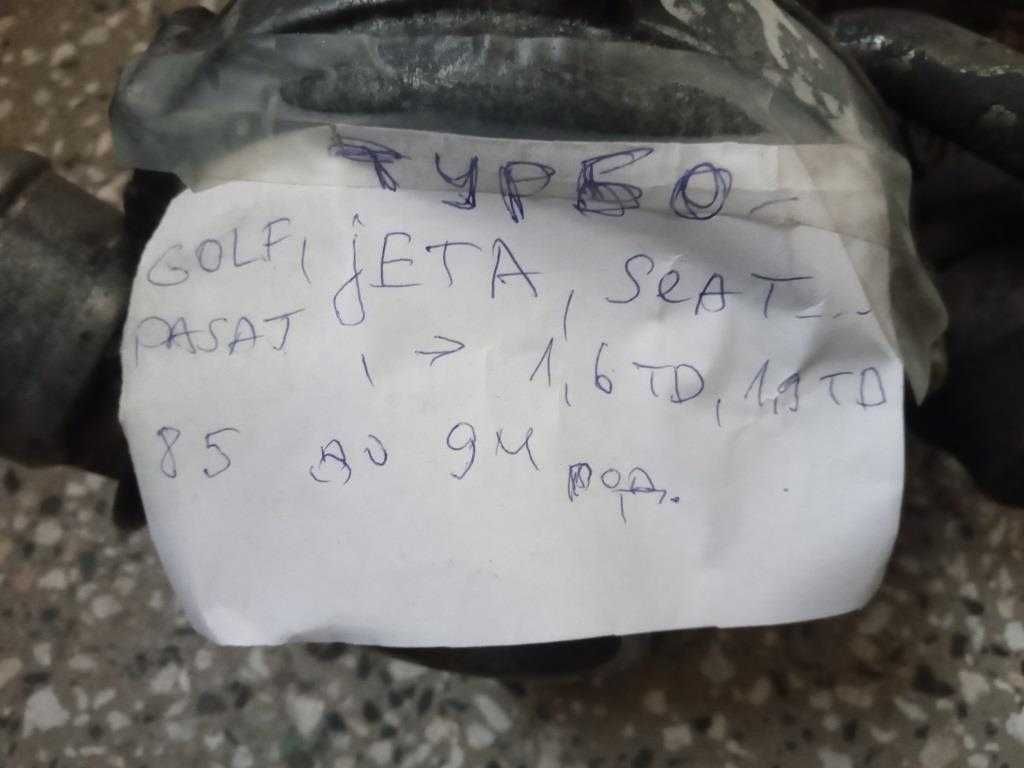 ТУРБО -
GOLF, jETA, SeAT...
PASAT, → 1,6 TD, 1,9 TD
85 до 94 год.